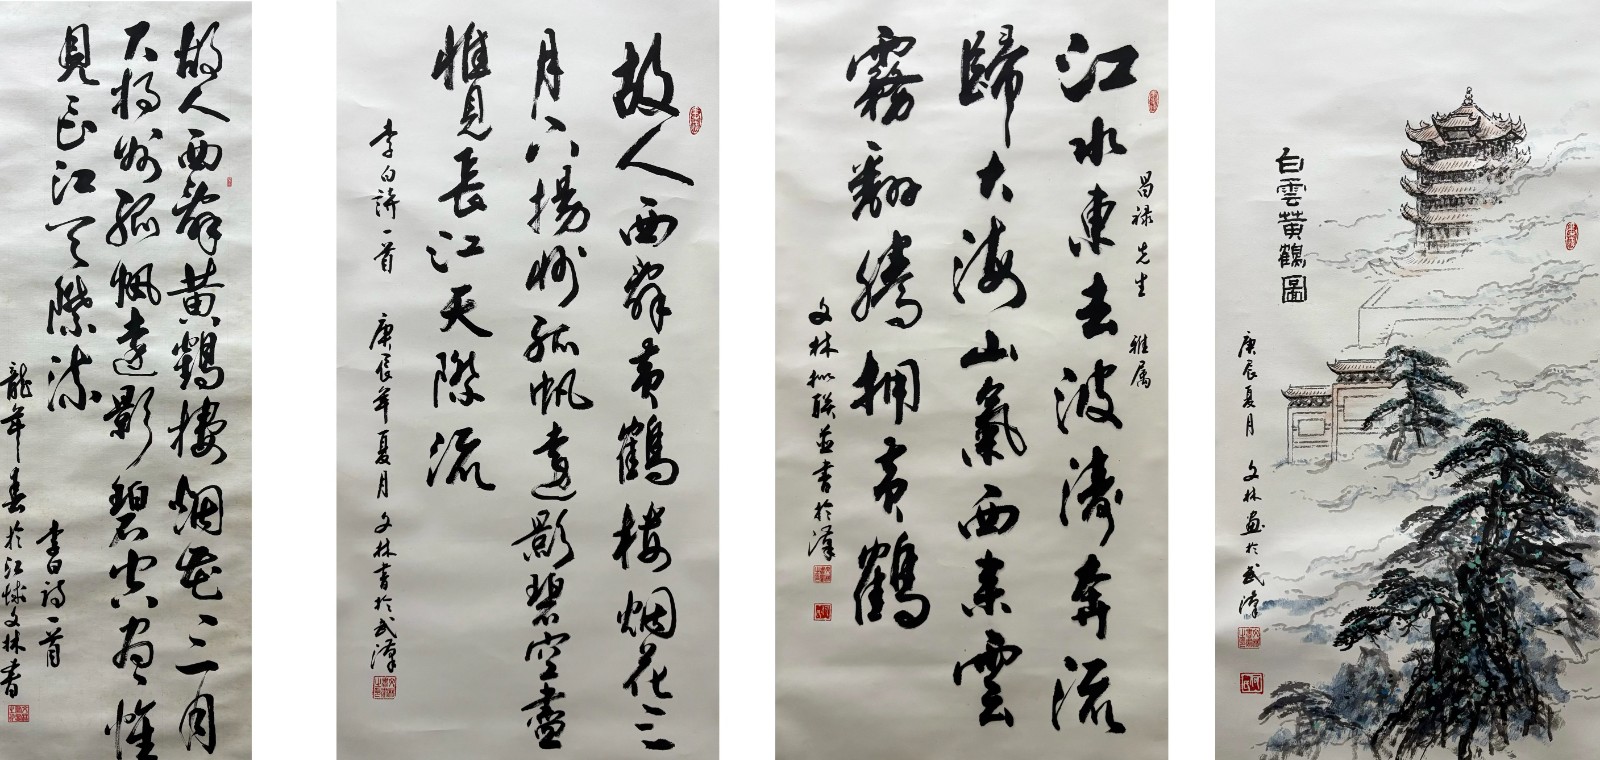 故人西辭黄鶴樓烟花三月
下揚州孤帆遠影碧空盡惟
見長江天際流
李白詩一首
龍年春於江城文林書
故人西辭黄鶴樓烟花三
月下揚州孤帆遠影碧空盡
惟見長江天際流
李白詩一首 庚辰年夏月文林書於武漢
昌禄先生 雅属
江水東去波濤奔流
歸大海山氣西来雲
霧翻騰拥黄鶴
文林撰联並書於漢
白雲黄鶴圖
庚辰夏月 文林畫於武漢